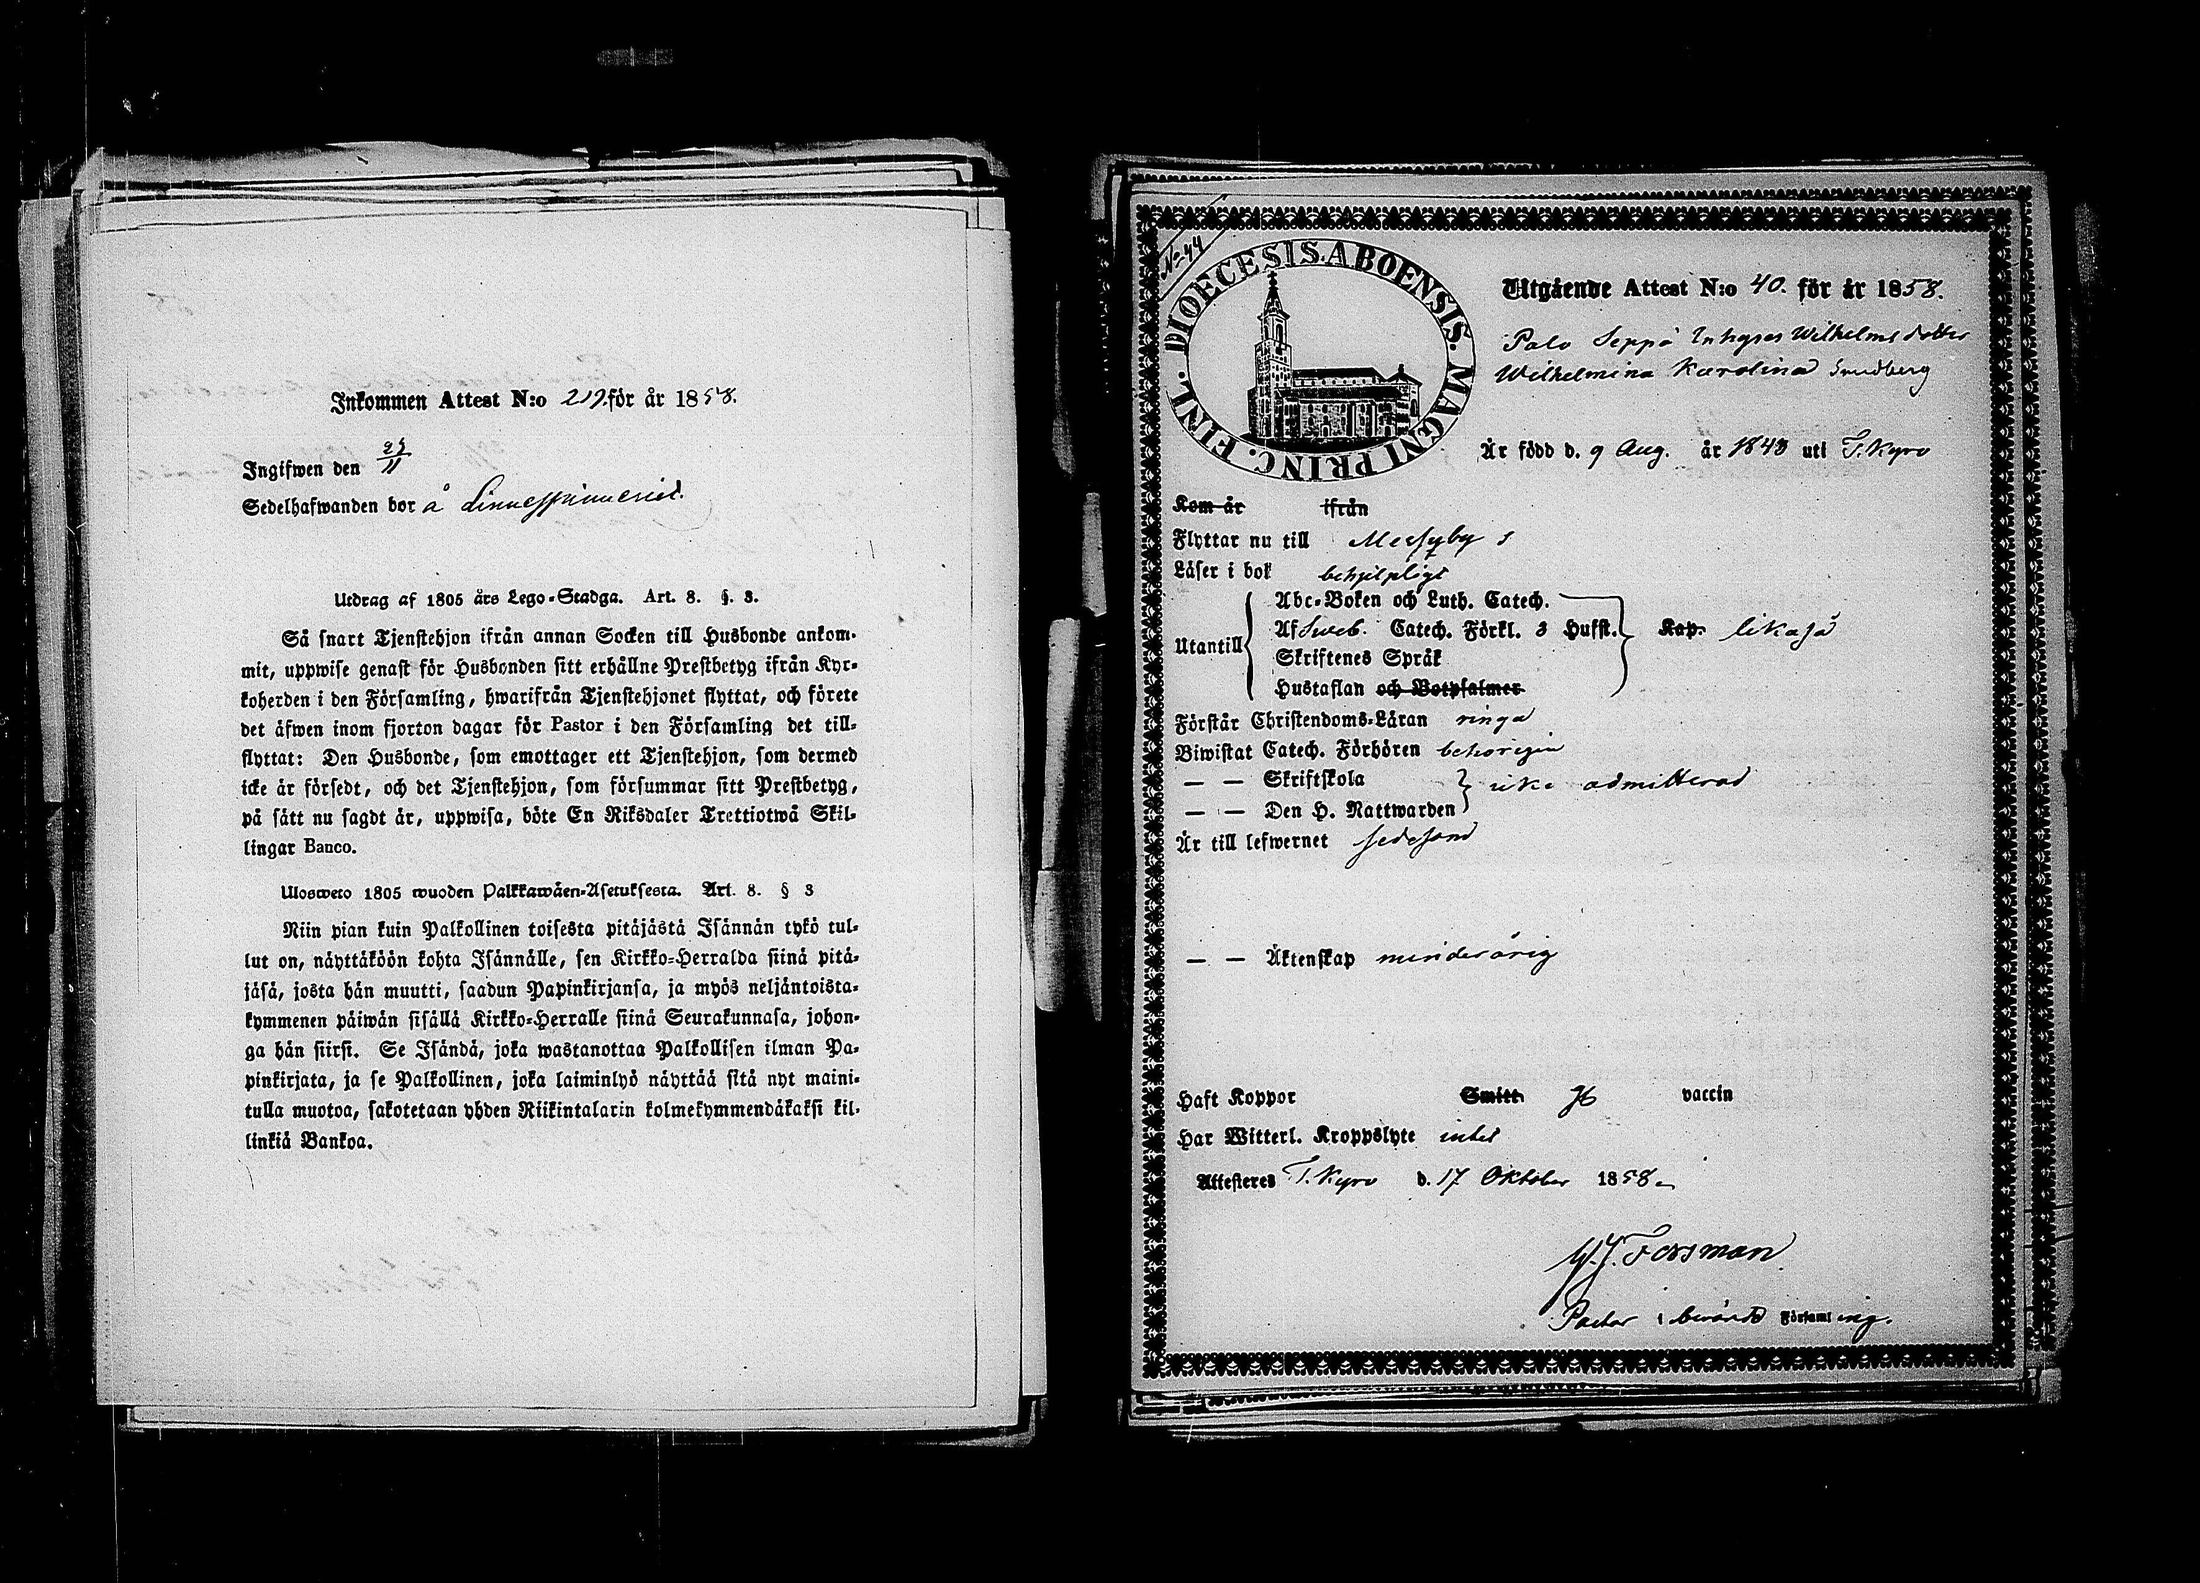 Inkommen Attest N:o 219. för år 1858.
Ingifwen den 25/11
Sedelhafwanden bor å Linnespinneriet.
Utdrag af 1805 års Lego-Stadga. Art. 8. §. 3.
Så snart Tjenstehjon ifrån annan Socken till Husbonde ankom-
mit, uppwise genast för Husbonden sitt erhållne Prestbetyg ifrån Kyr-
koherden i den Församling, hwarifrån Tjenstehjonet flyttat, och förete
det äfwen inom fjorton dagar för Pastor i den Församling det till-
flyttat: Den Husbonde, som emottager ett Tjenstehjon, som dermed
icke är försedt, och det Tjenstehjon, som försummar sitt Prestbetyg,
på sätt nu sagdt är, uppwisa, böte En Riksdaler Trettiotwå Skil-
lingar Banco.
Ulosweto 1805 wuoden Palkkawäen-Asetuksesta. Art. 8. § 3
Niin pian kuin Palkollinen toisesta pitäjästä Isännän tykö tul-
lut on, näyttäköön kohta Isännälle, sen Kirkko-Herralda siinä pitä-
jäsä, josta hän muutti, saadun Papinkirjansa, ja myös neljäntoista-
kymmenen päiwän sisällä Kirkko-Herralle siinä Seurakunnasa, johon-
ga hän siirsi. Se Isändä, joka wastanottaa Palkollisen ilman Pa-
pinkirjata, ja se Palkollinen, joka laiminlyö näyttää sitä nyt maini-
tulla muotoa, sakotetaan yhden Riikintalarin kolmekymmendäkaksi kil-
linkiä Bankoa.
No 44
DIOECESIS ABOENSIS. MAGNI PRINC. FINL.
Utgående Attest N:o 40. för år 1858.
Palo Seppä Inhyses Wilhelms dotter
Wilhelmina Karolina Sundberg
Är född d. 9 Aug. år 1843 uti T. Kyro
Kom år ifrån
Flyttar nu till Messuby s
Läser i bok behjelpligt
Utantill
Abc-Boken och Luth. Catech.
Af Sweb. Catech. Förkl. 3 Hufst. Kap. likaså
Skriftenes Språk
Hustaflan och Botpsalmer
Förstår Christendoms-Läran ringa
Biwistat Catech. Förhören behörigen
— — Skriftskola
icke admitterad
— — Den H. Nattwarden
Är till lefwernet sedesam
— — Äktenskap minderårig
Haft Koppor Smitt vaccin
Har Witterl. Kroppslyte intet
Attesteres T. Kyro d. 17 Oktober 1858.
Forsman
Pastor i berörde Församling.